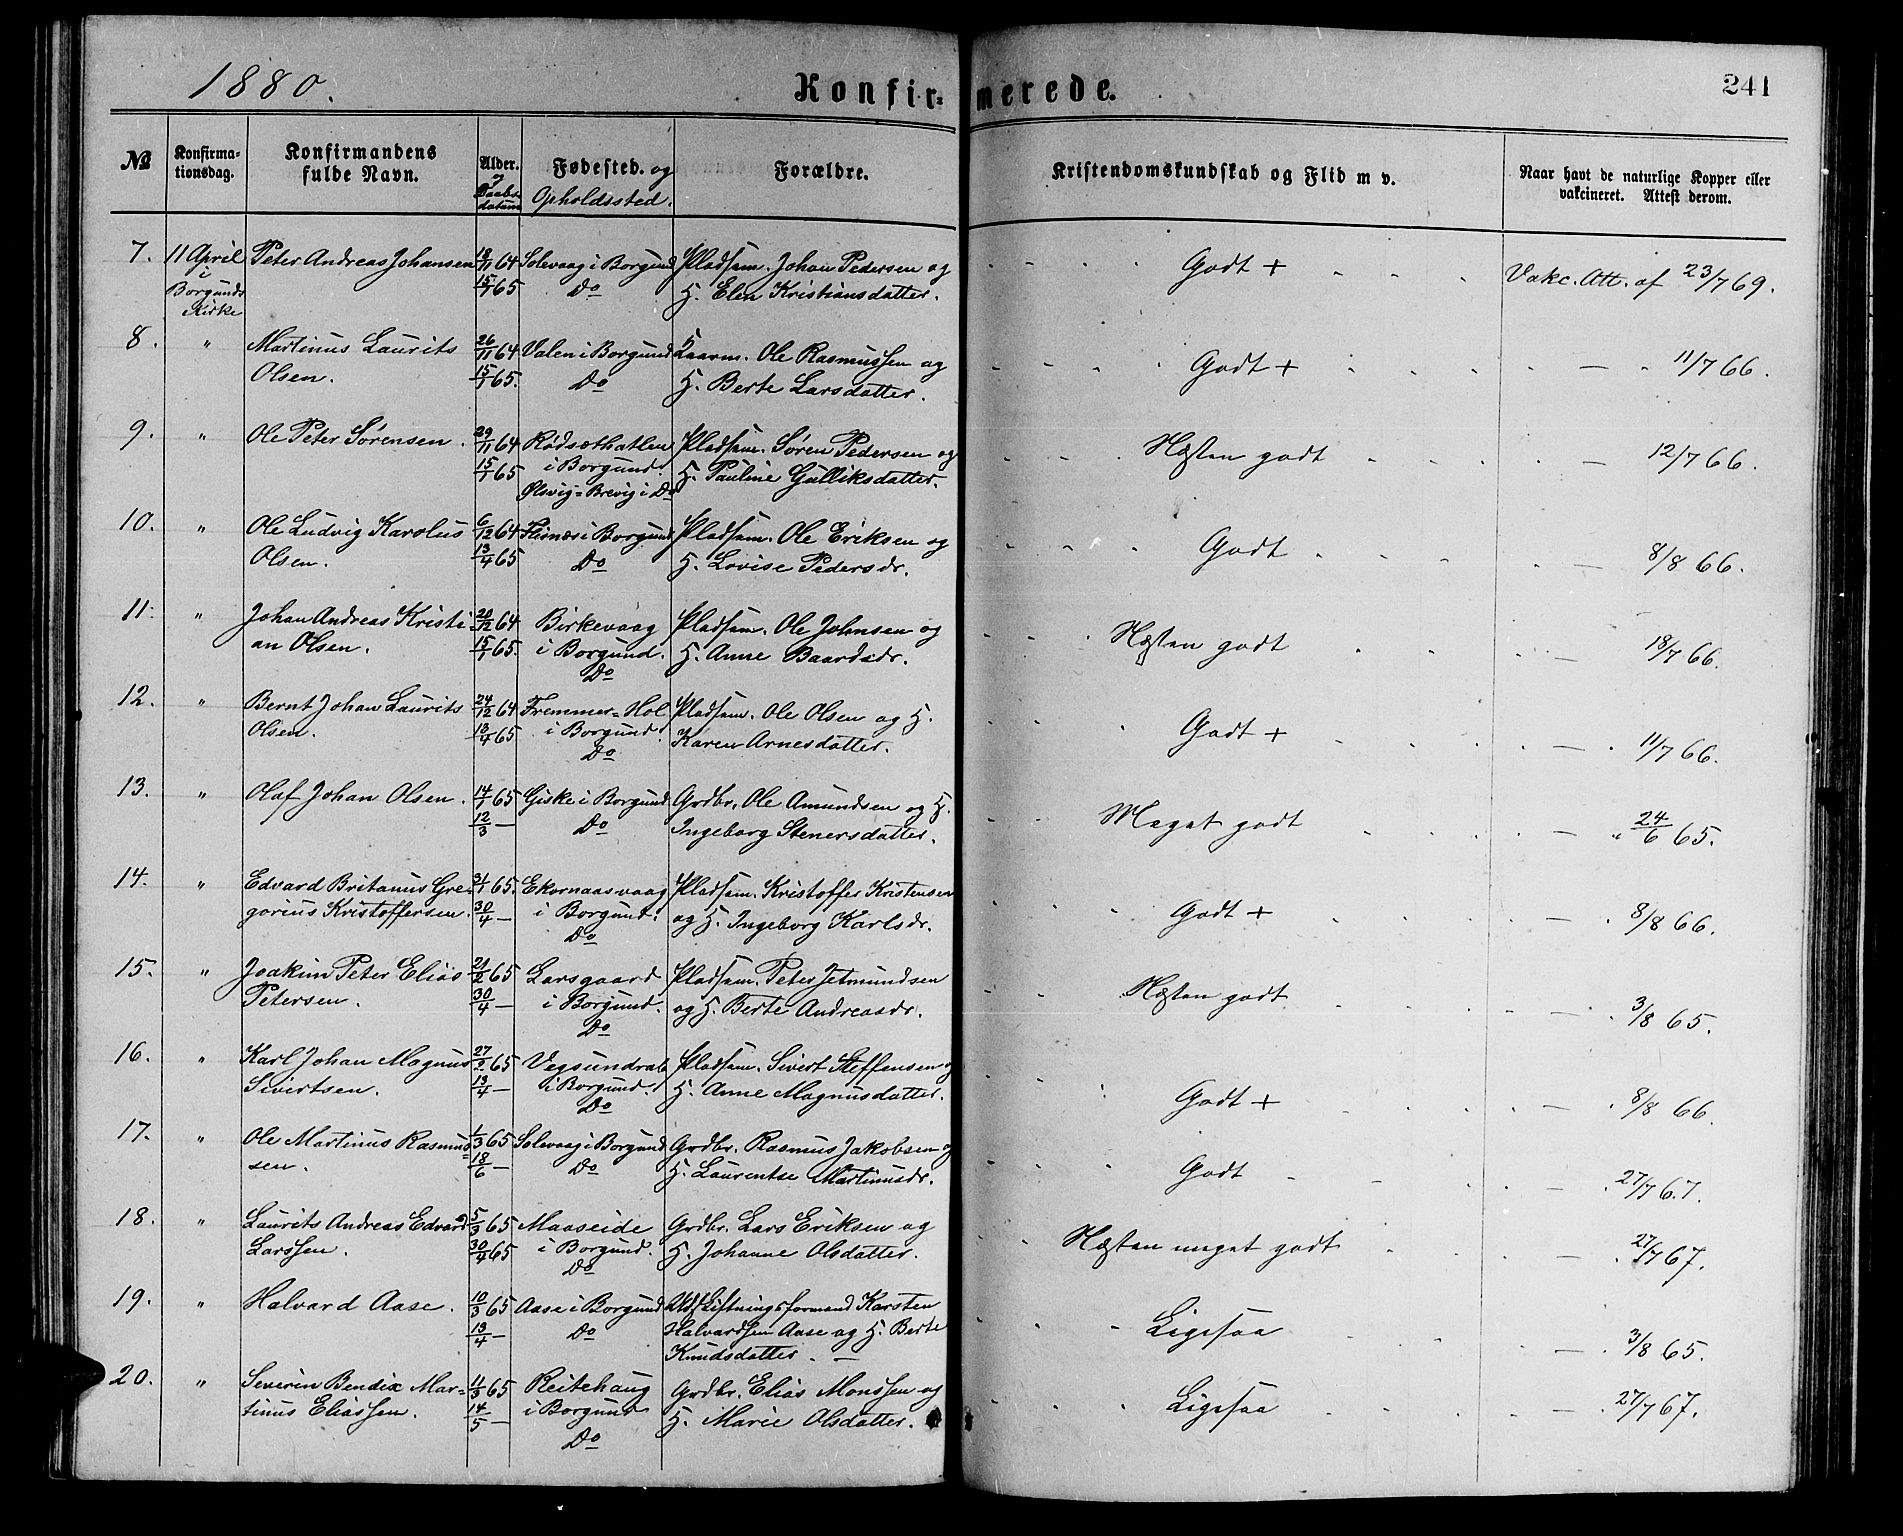 1880.
Konfir=
merede.
241
No
Konfirma=
tionsdag.
Konfirmandens
fulde Navn.
Alder.
og
Daabs-
datum
Fødested. og
Opholdssted.
Forældre.
Kristendomskundskab og Flid m v.
Naar havt de naturlige Kopper eller
vakcineret. Attest derom.
7. 11 April Peter Andreas Johansen 18/11 64 Solevaag i Borgund Pladsm. Johan Pedersen og
i Borgunds Kirke 15/1 65 Do H. Elen Kristiansdatter.
Godt + Vakc. Att. af 23/7 69.
8. " Martinus Laurits 26/11 64 Valen i Borgund Kaarm. Ole Rasmussen og
Olsen. 15/1 65. Do H. Berte Larsdatter.
Godt + — 11/7 66.
9. " Ole Peter Sørensen. 29/11 64 Rødsæthatlen Pladsm. Søren Pedersen og
15/1 65 i Borgund. H. Pauline Gulliksdatter.
Ølsvig=Brevig i Do
Næsten godt — 12/7 66.
10. " Ole Ludvig Karolus 6/12 64 Flisnæs i Borgund Pladsm. Ole Eriksen og
Olsen. 13/4 65 Do H. Lovise Pedersdr.
Godt — 8/8 66.
11. " Johan Andreas Kristi- 20/12 64 Birkevaag Pladsm. Ole Johnsen og
an Olsen. 15/1 65. i Borgund. H. Anne Baardsdr.
Do
Næsten godt — 18/7 66.
12. " Bernt Johan Laurits 24/12 64 Fremmer=Hol Pladsm. Ole Olsen og H.
Olsen. 13/4 65 i Borgund. Karen Arnesdatter.
Do
Godt + — 11/7 66.
13. " Olaf Johan Olsen. 14/1 65 Giske i Borgund Grdbr. Ole Amundsen og H.
12/3 — Do Ingeborg Stenersdatter.
Meget godt — 24/6 65.
14. " Edvard Britanus Gre- 31/1 65. Ekornaasvaag Pladsm. Kristoffer Kristensen
gorius Kristoffersen. 30/4 — i Borgund. og H. Ingeborg Karlsdr.
Do
Godt + — 8/8 66.
15. " Joakim Peter Elias 21/2 65 Larsgaard Pladsm. Peter Jetmundsen
Petersen. 30/4 — i Borgund. og H. Berte Andreasdr.
Do
Næsten godt — 3/8 65.
16. " Karl Johan Magnus 27/2 65 Vegsundral Pladsm. Sivert Steffensen og
Sivertsen. 13/4 — i Borgund. H. Anne Magnusdatter.
Do
Godt + — 8/8 66.
17. " Ole Martinus Rasmus= 1/3 65 Solevaag i Borgund Grdbr. Rasmus Jakobsen og
sen. 18/6 — Do H. Laurentse Martinusdr.
Godt — 27/7 67.
18. " Laurits Andreas Edvard 5/3 65 Maaseide Grdbr. Lars Eriksen og
Larssen. 30/4 65 i Borgund. H. Johanne Olsdatter.
Do
Næsten meget godt — 27/7 67.
19. " Halvard Aase. 10/3 65 Aase i Borgund Udskiftningsformand Karsten
13/4 — Do Halvardsen Aase og H. Berte
Knudsdatter. —
Ligesaa — 3/8 65.
20. " Severin Bendix Mar= 11/3 65 Reitehaug Grdbr. Elias Monssen og
tinus Eliassen. 14/5 — i Borgund H. Marie Olsdatter.
Do
Ligesaa — 27/7 67.